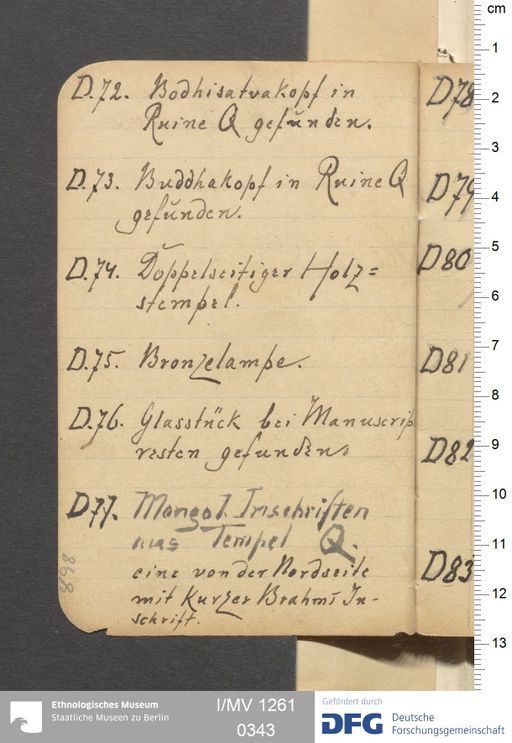 D.72. Bodhisatvakopf in
Ruine Q gefunden.
D.73. Buddhakopf in Ruine Q
gefunden.
D.74. Doppelseitiger Holz=
stempel.
D.75. Bronzelampe.
D.76. Glasstück bei Manuscrip
resten gefunden.
D77. Mongol. Inschriften
aus Tempel Q.
eine von der Nordseite
mit kurzer Brahmi In-
schrift.
898
D78
D79
D80
D81
D82
D83
cm
1
2
3
4
5
6
7
8
9
10
11
12
13
Ethnologisches Museum
Staatliche Museen zu Berlin
I/MV 1261
0343
Gefördert durch
DFG Deutsche
Forschungsgemeinschaft